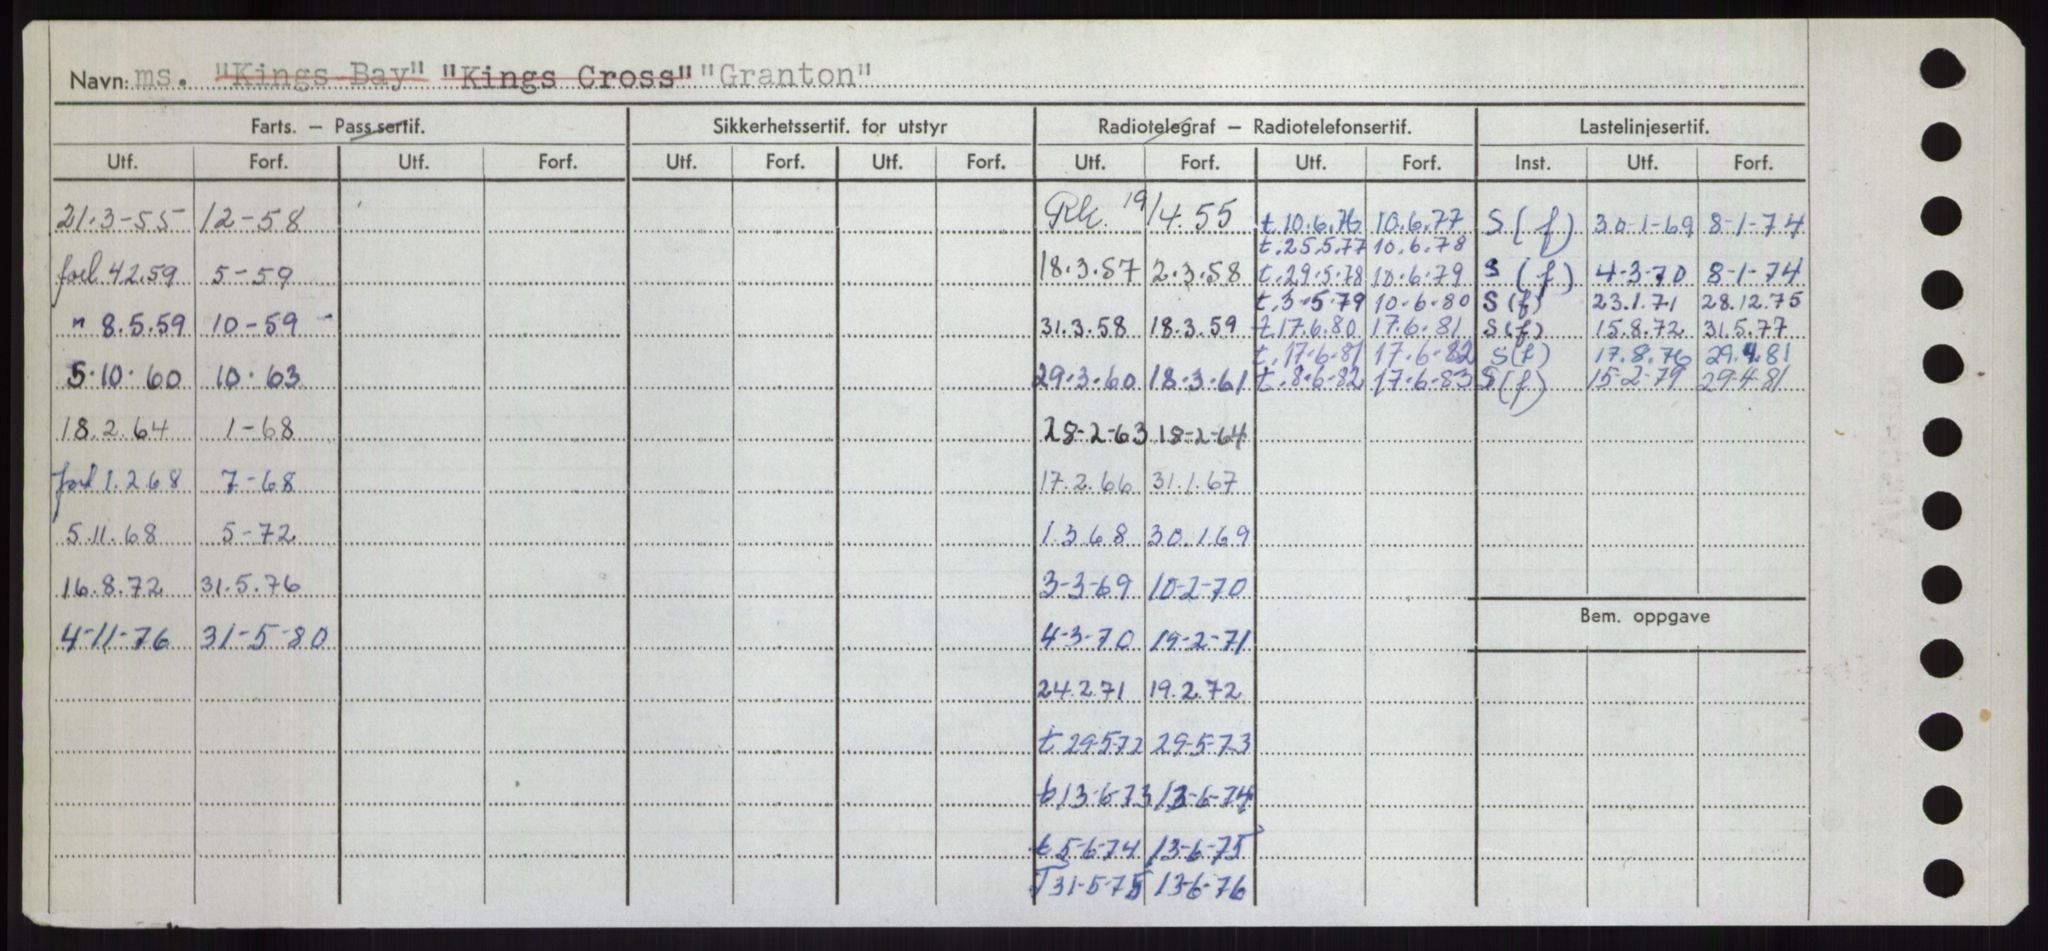 Navn: ms. "Kings Bay" "Kings Cross" "Granton"
Farts. – Pass.sertif. Sikkerhetssertif. for utstyr Radiotelegraf – Radiotelefonsertif. Lastelinjesertif.
Utf. Forf. Utf. Forf. Utf. Forf. Utf. Forf. Utf. Forf. Utf. Forf. Inst. Utf. Forf.
21.3-55 12-58 Rk. 19/4.55 t.10.6.76 10.6.77 S (f) 30-1-69 8-1-74
t.25.5.77 10.6.78
forl 4.2.59 5-59 18.3.57 2.3.58 t.29.5.78 10.6.79 S (f) 4-3-70 8-1-74
t.3-5.79 10-6-80 S (f) 23.1.71 28.12.75
" 8.5.59 10-59 31.3.58 18.3.59 t 17.6.80 17.6.81 S (f) 15.8.72 31.5.77
t.17-6-81 17-6-82 S (f) 17.8.76 29.4.81
5.10.60 10.63 29.3.60 18.3.61 t.8-6-82 17-6-83 S (f) 15-2-79 29-4-81
18.2.64 1-68 28-2-63 18-2-64
forl 1.2.68 7-68 17.2.66 31.1.67
5.11.68 5-72 1.3.68 30.1.69
16.8.72 31.5.76 3-3-69 10-2-70
Bem. oppgave
4-11-76 31-5-80 4-3-70 19-2-71
24.2.71 19.2.72
t 29.5.72 29-5-73
t 13-6-73 13-6-74
t 5-6-74 13-6-75
T 31-5-75 13-6-76